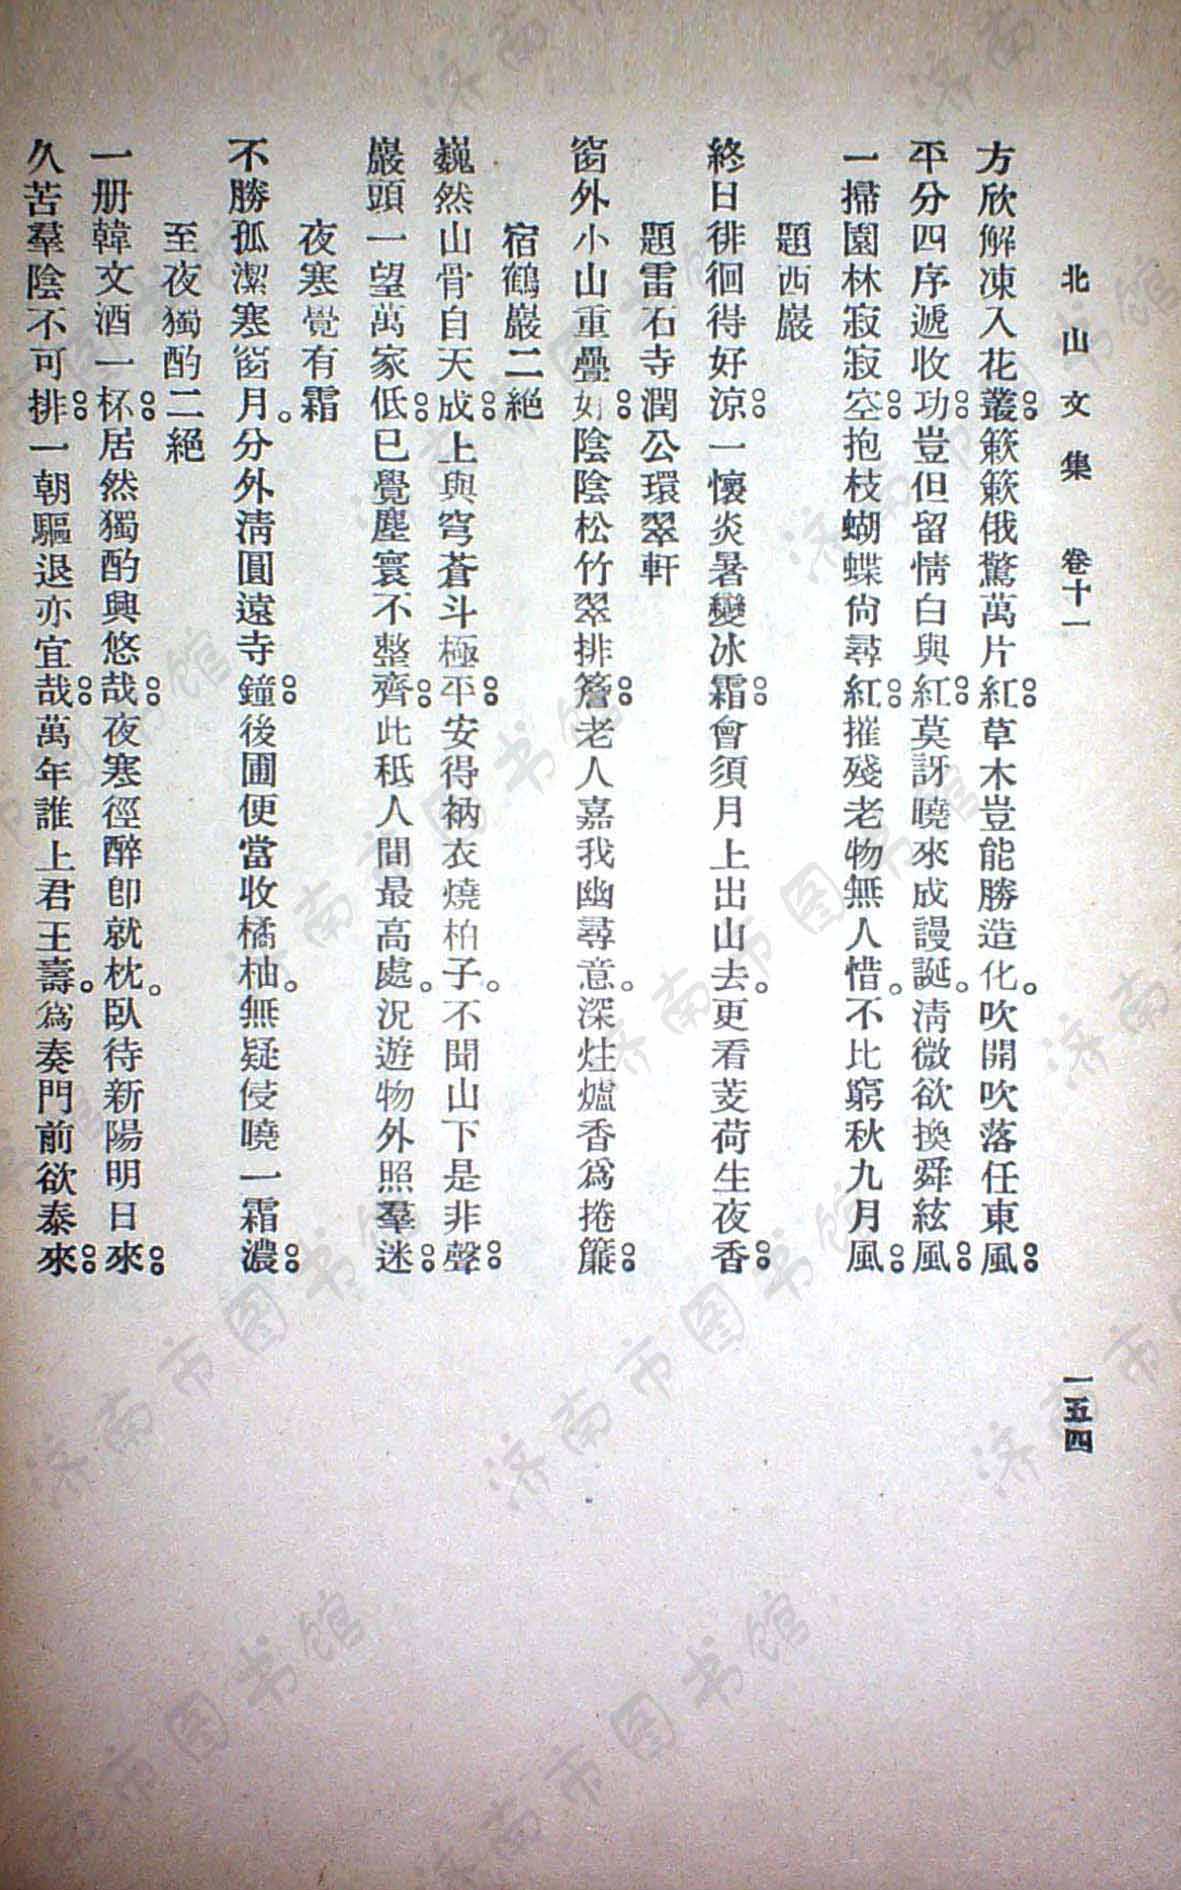 北山文集 卷十一 一五四
方欣解凍入花叢。簌簌俄驚萬片紅。草木豈能勝造化。吹開吹落任東風。
平分四序遞收功。豈但留情白與紅。莫訝曉來成謾誕。淸微欲換舜絃風。
一掃園林寂寂空。抱枝蝴蝶尙尋紅。摧殘老物無人惜。不比窮秋九月風。
題西巖
終日徘徊得好涼。一懷炎暑變冰霜。會須月上出山去。更看芰荷生夜香。
題雷石寺潤公環翠軒
窗外小山重疊好。陰陰松竹翠排簷。老人嘉我幽尋意。深炷爐香爲捲簾。
宿鶴巖二絕
巍然山骨自天成。上與穹蒼斗極平。安得衲衣燒柏子。不聞山下是非聲。
巖頭一望萬家低。已覺塵寰不整齊。此秖人間最高處。況遊物外照羣迷。
夜寒覺有霜
不勝孤潔寒窗月。分外淸圓遠寺鐘。後圃便當收橘柚。無疑侵曉一霜濃。
至夜獨酌二絕
一册韓文酒一杯。居然獨酌興悠哉。夜寒徑醉卽就枕。臥待新陽明日來。
久苦羣陰不可排。一朝驅退亦宜哉。萬年誰上君王壽。爲奏門前欲泰來。
济南市图书馆